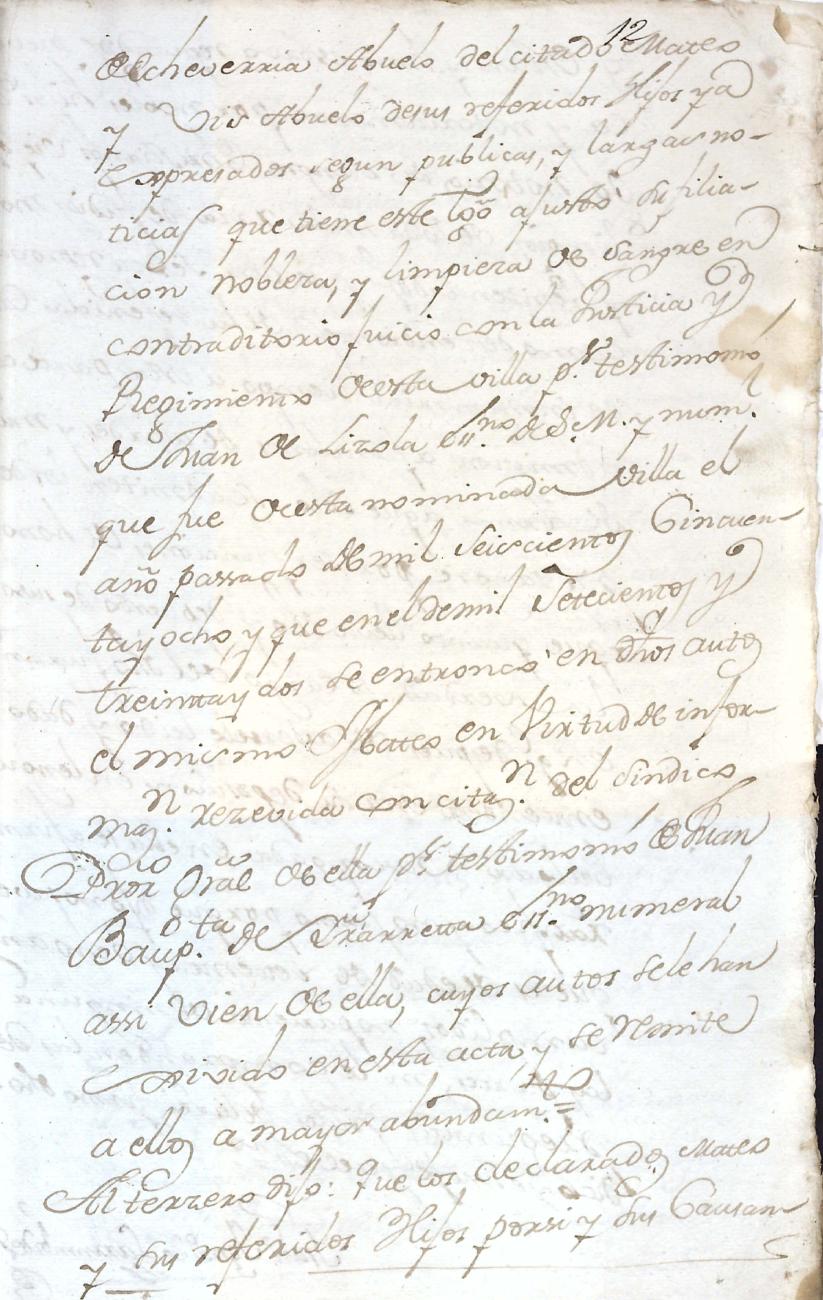 12
de Echeverria Abuelo del citado Mateo
y Vis Abuelo desus referidos Hijos ya
expresados segun publicas, y largas no-
ticias que tiene este tgo. ajusto su filia-
cion nobleza, y limpieza de sangre en
contraditorio juicio con la Justicia y
Regimiento de esta villa pr. testimonio
de Juan de Lizola essno. de S. M. y numl.
que fue de esta nominada villa el
año passado de mil seiscientos Cinquen-
ta y ocho, y que en el de mil Setecientos y
treinta y dos se entroncó en dhos autos
el mismo Mateo en Virtud de infor-
mazn. rezevida con citazn. del Sindico
Pror Gral de ella pr. testimonio de Juan
Baupta. de essno. numeral
assi vien de ella, cuyos autos se le han
exivido en esta acta, y se remite
a ellos a mayor abundamto. =
Al terzero dijo: Que los declarados Mateo
y sus referidos Hijos por si y sus Causan-